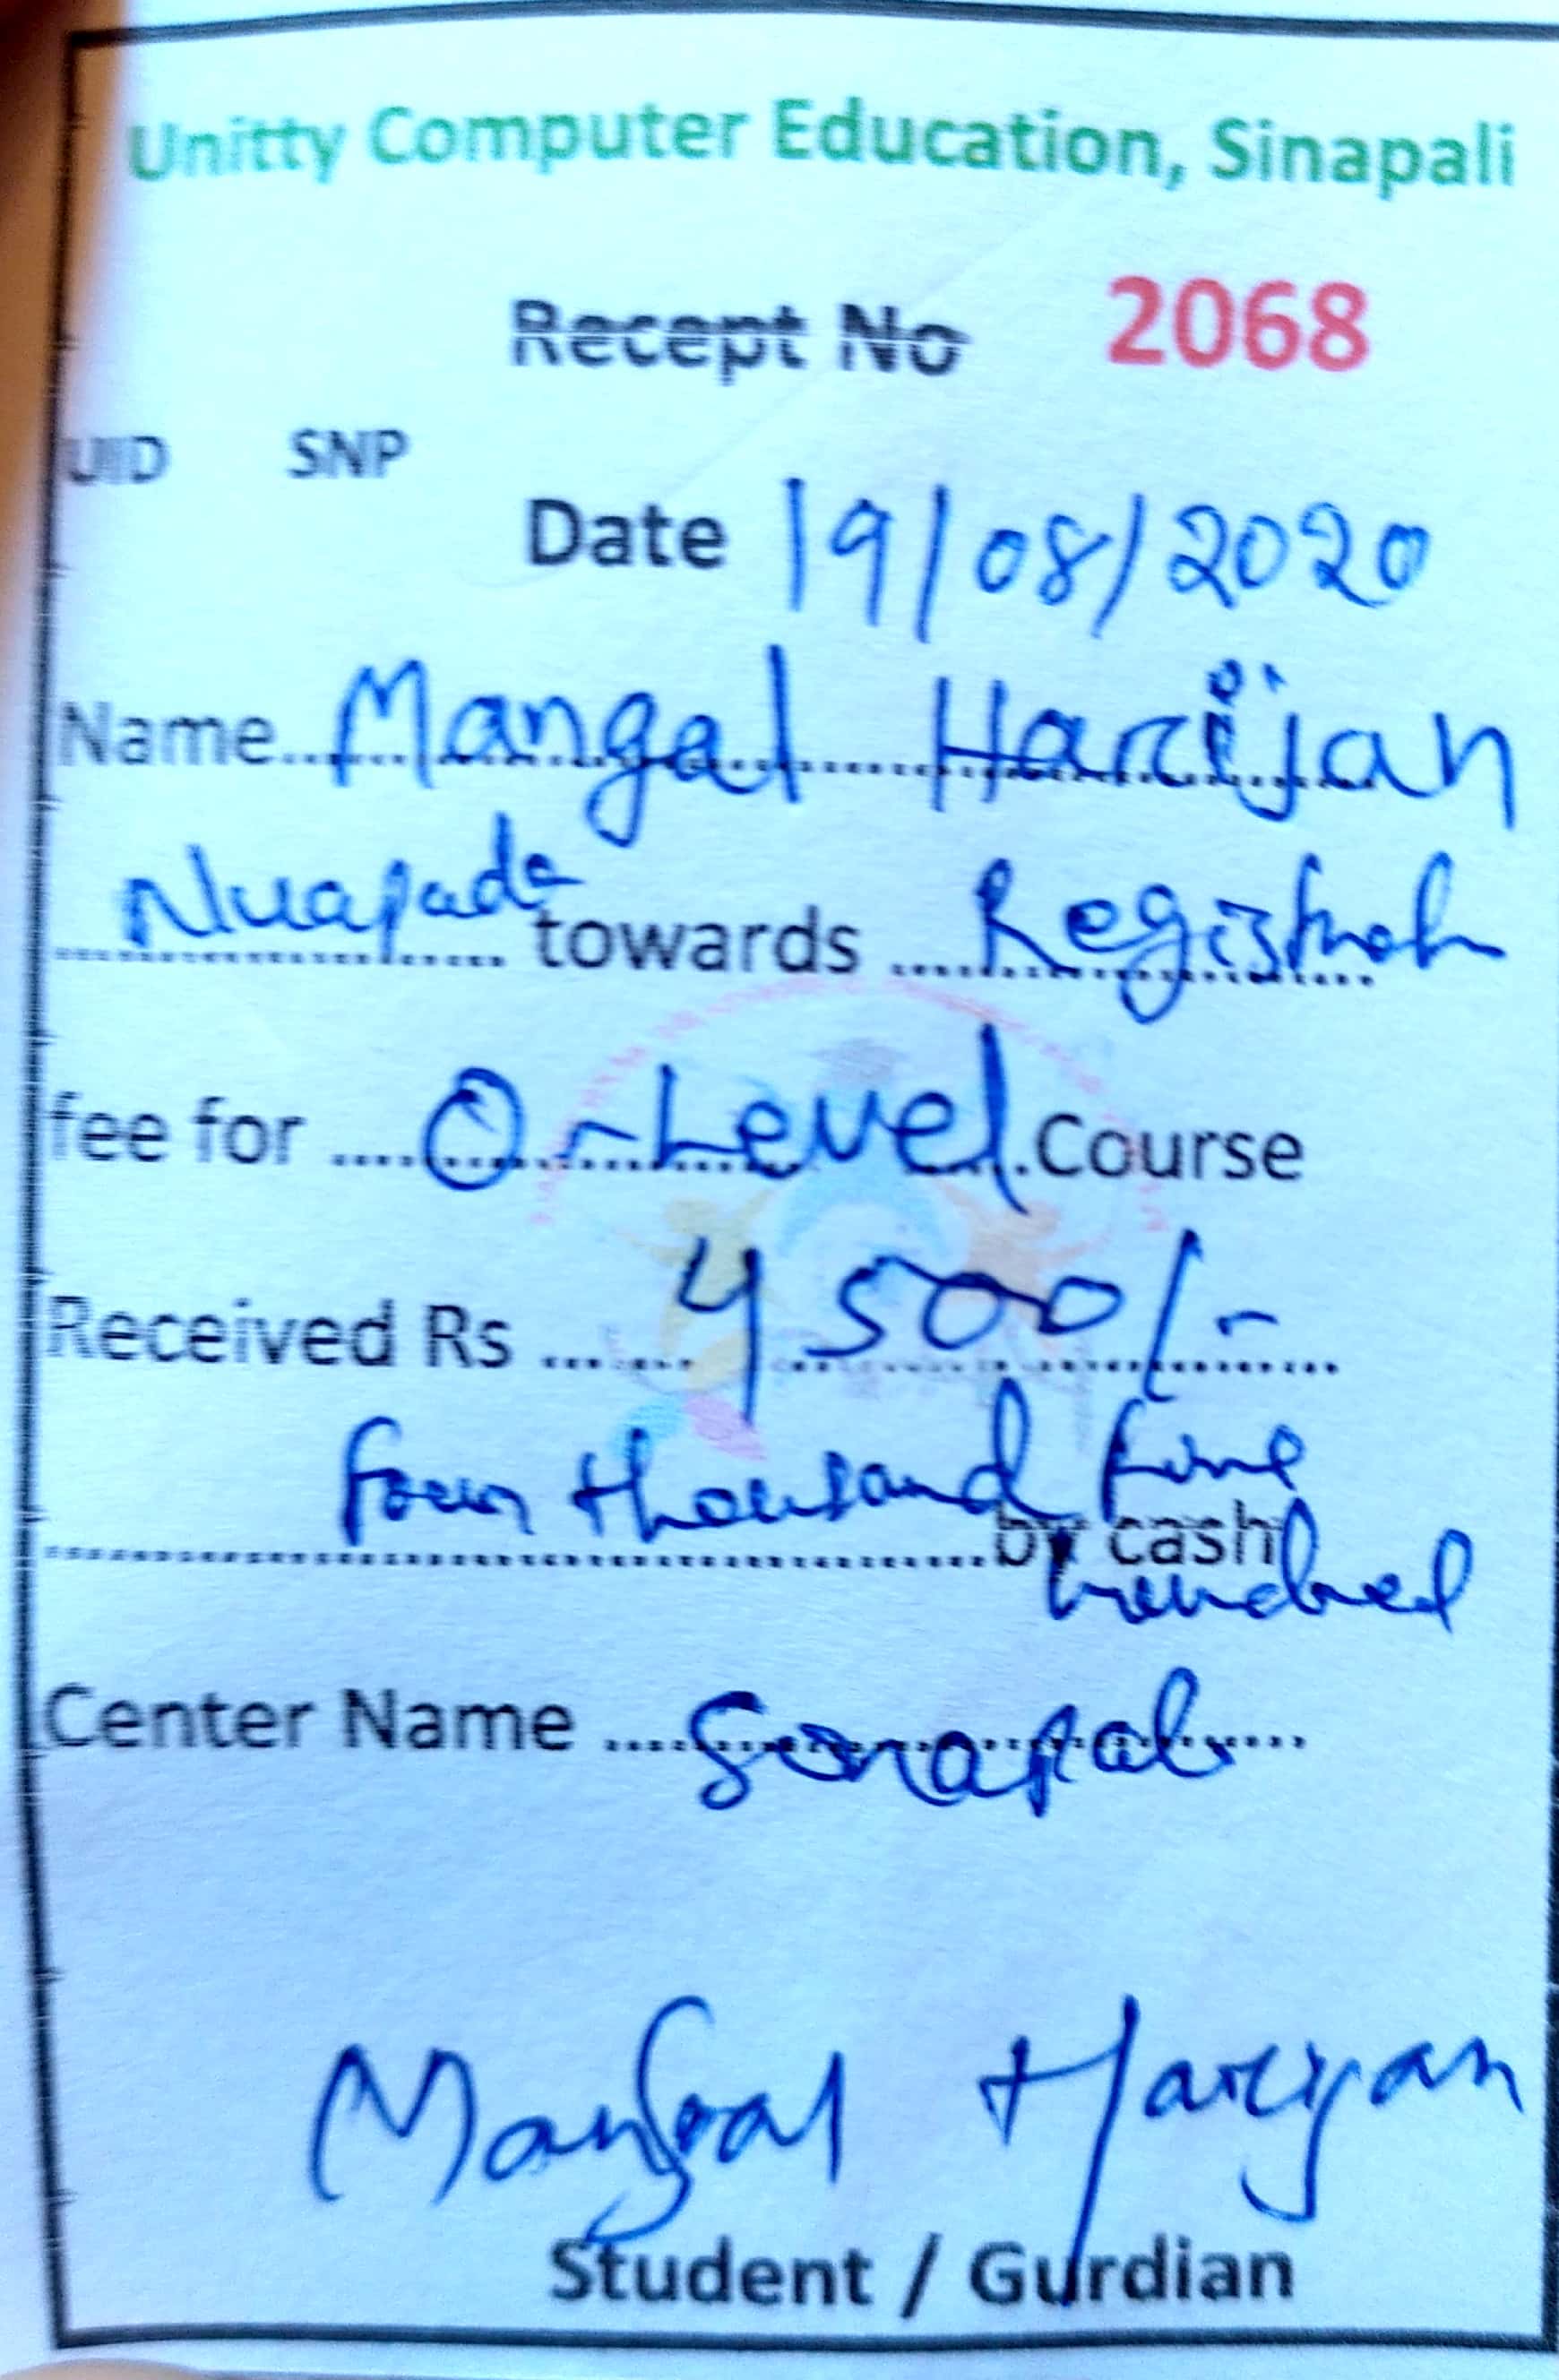 Unitty Computer Education, Sinapali
Recept No 2068
UID SNP
Date 19/08/2020
Name Mangal Harijan
Nuapada towards Registrat
fee for O-Level Course
Received Rs 4500/-
four thousand five
by cash
hundred
Center Name Sinapali
Mangal Harijan
Student / Gurdian